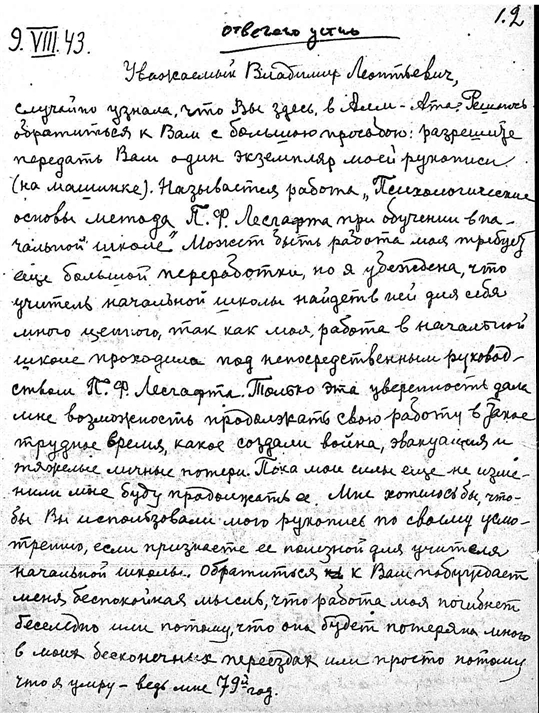 1.2
отвечено устно
9.VIII.43.
Уважаемый Владимир Леонтьевич,
случайно узнала, что Вы здесь, в Алма-Ата. Решаюсь
обратиться к Вам с большою просьбою: разрешите
передать Вам один экземпляр моей рукописи
(на машинке). Называется работа „Психологические
основы метода П.Ф. Лесгафта при обучении в на-
чальной школе" Может быть работа моя требует
еще большой переработки, но я убеждена, что
учитель начальной школы найдет в ней для себя
много ценного, так как моя работа в начальной
школе проходила под непосредственным руковод-
ством П.Ф. Лесгафта. Только эта уверенность дала
мне возможность продолжать свою работу в такое
трудное время, какое создали война, эвакуация и
тяжелые личные потери. Пока мои силы еще не изме-
нили мне буду продолжать ее. Мне хотелось бы, что-
бы Вы использовали мою рукопись по своему усмо-
трению, если признаете ее полезной для учителя
начальной школы. Обратиться к Вам побуждает
меня беспокойная мысль, что работа моя погибнет
бесследно или потому, что она будет потеряна мною
в моих бесконечных переездах или просто потому
что я умру – ведь мне 79й год.